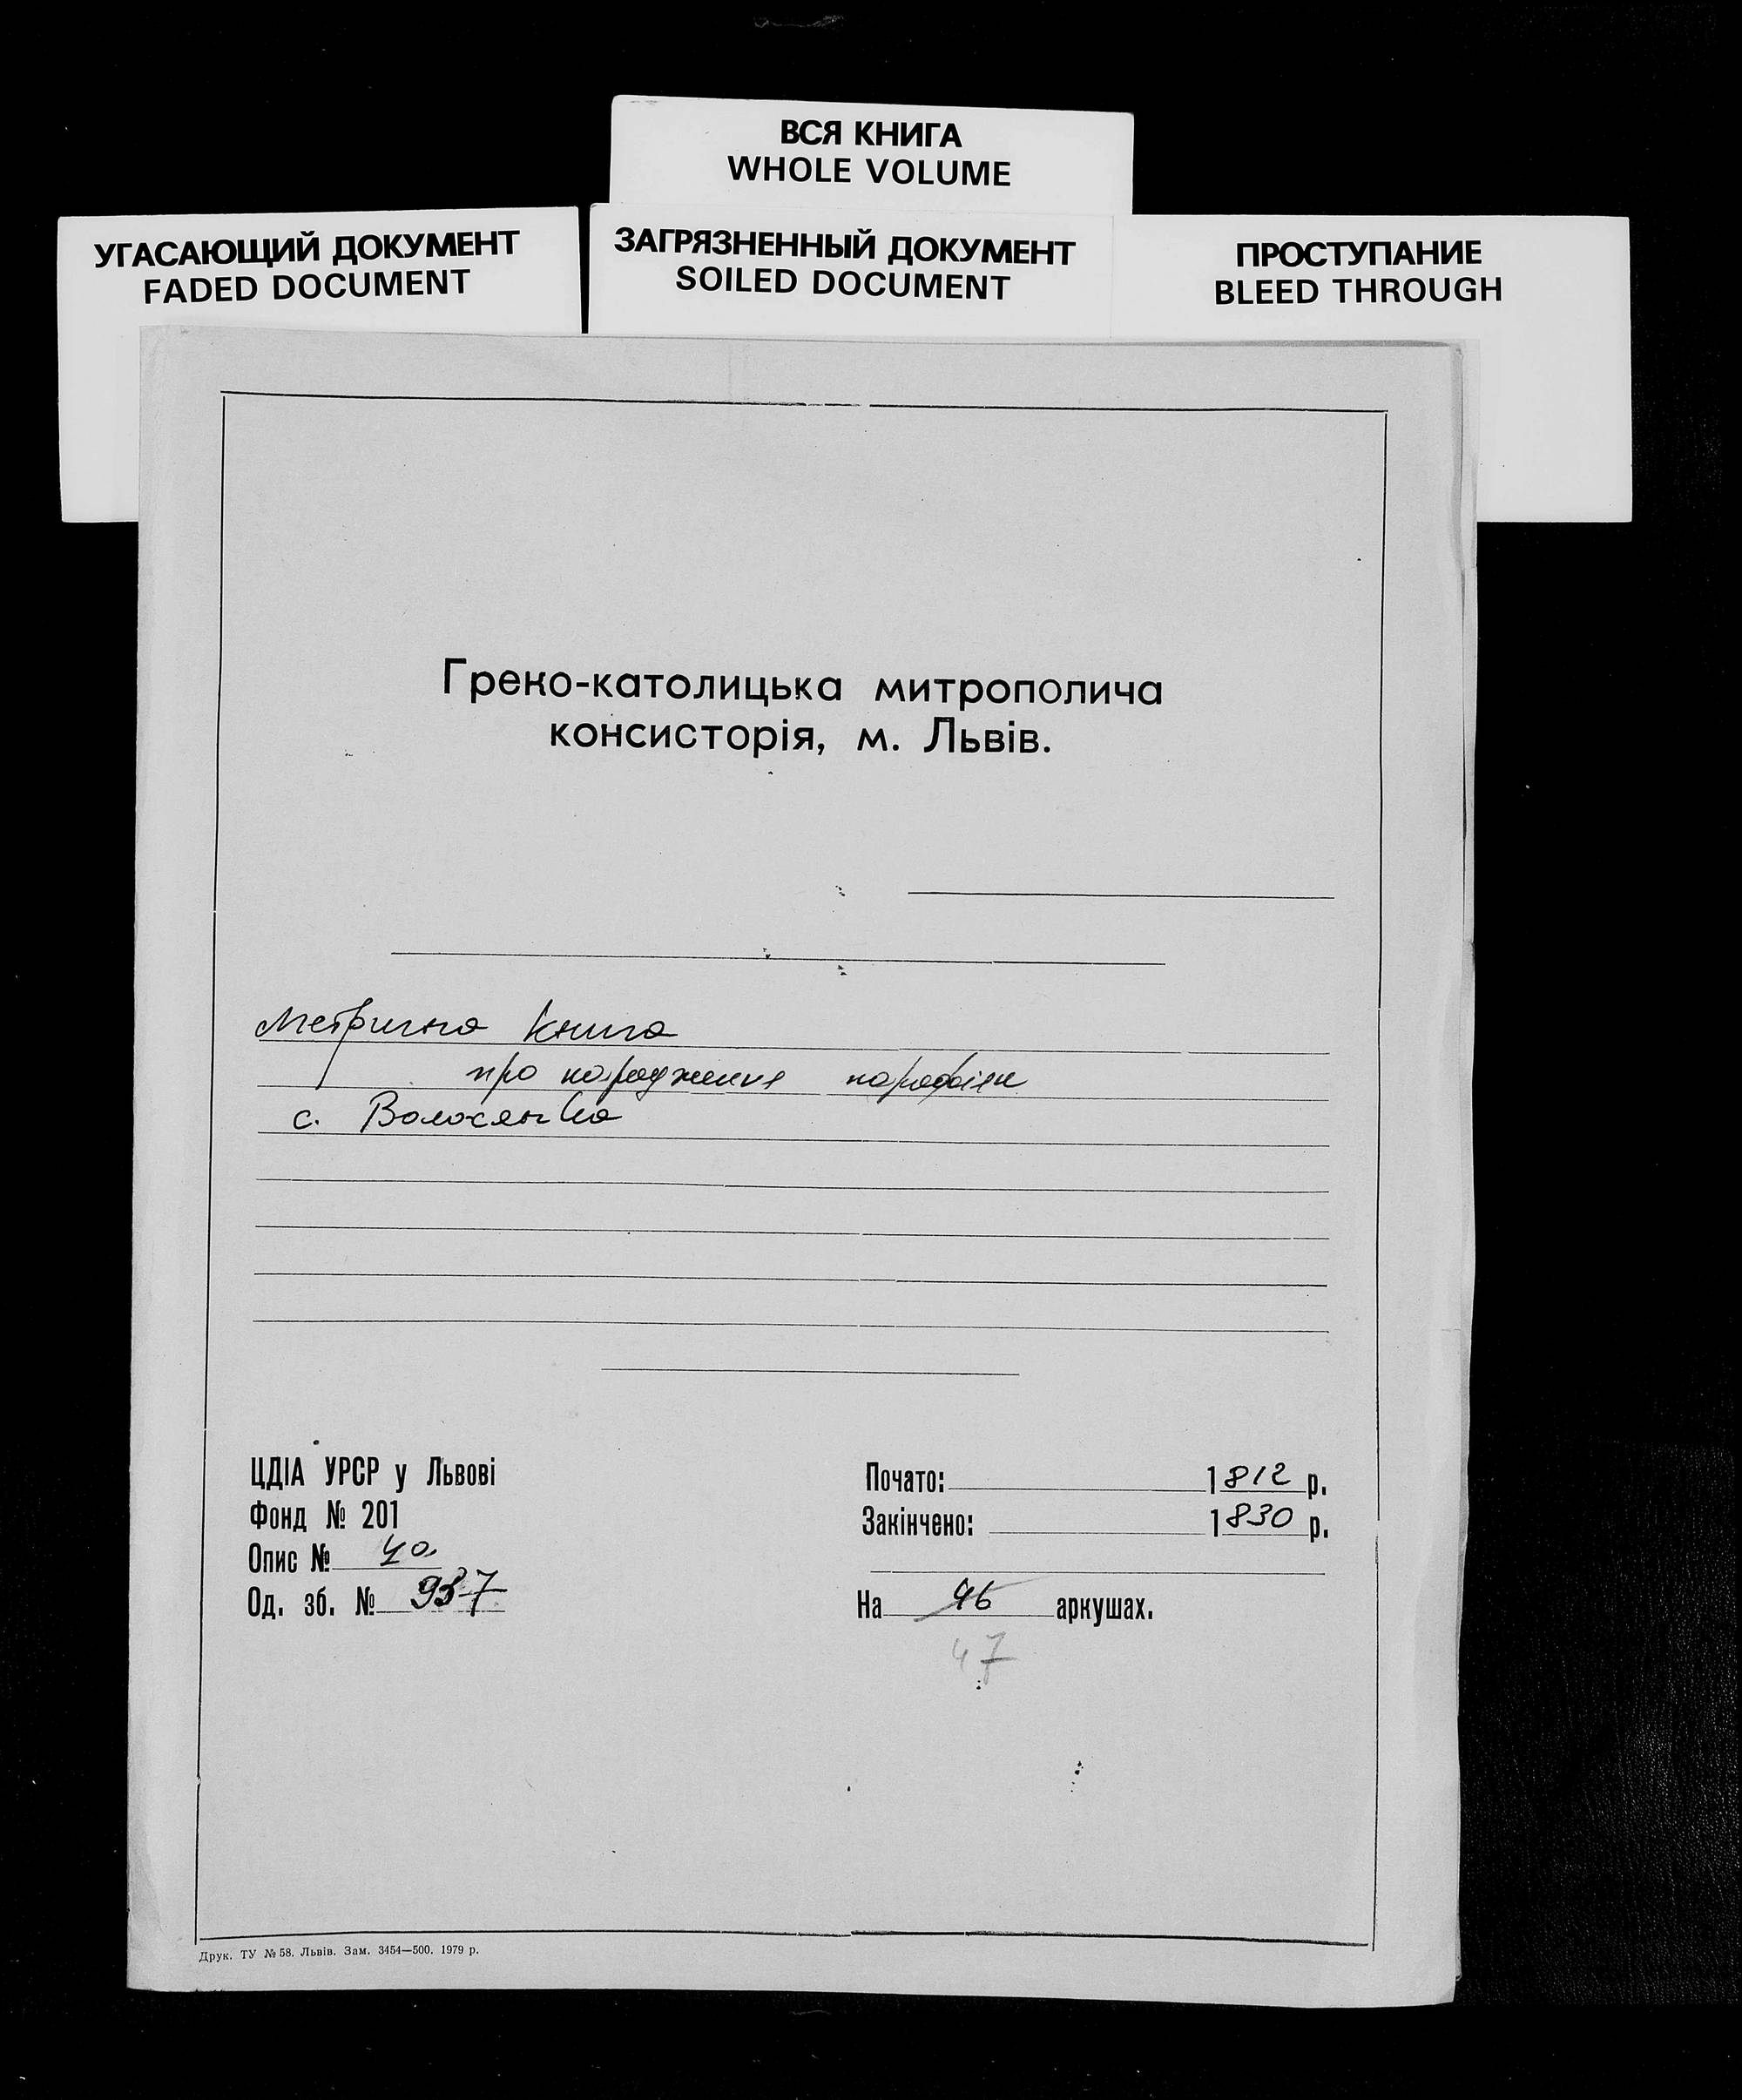 ВСЯ КНИГА
WHOLE VOLUME
УГАСАЮЩИЙ ДОКУМЕНТ
FADED DOCUMENT
ЗАГРЯЗНЕННЫЙ ДОКУМЕНТ
SOILED DOCUMENT
ПРОСТУПАНИЕ
BLEED THROUGH
Греко-католицька митрополича
консисторія, м. Львів.
Метрична книга
про народження парафіян
с. Волосянка
ЦДІА УРСР у Львові
Фонд № 201
Опис № 4а
Од. зб. № 937
Почато: 1812 р.
Закінчено: 1830 р.
На 46 аркушах.
47
Друк. ТУ № 58. Львів. Зам. 3454—500. 1979 р.